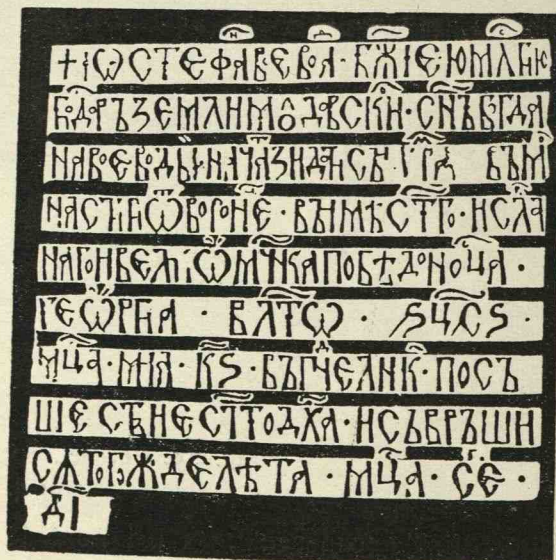 +ІѠСТЕФАⷩ҇ВЕВОⷣА · БЖ҃ІЕЮМЛⷭ҇ТІЮ
ГОДРЪЗЕМЛИМОДВСКИ · СН҃ЪБГДА
НАВОЕВОДЫ · НАЧАЗИДАТИСЪ · ГРА ВЪМ
НАСТИѠВОРОНЕ · ВЪИМѢСТ҃ГО · ИСЛА
НАГОИВЕЛІѠМЧ҃ИКАПОБѢДОНОЦА ·
ГЕѠРГІА · ВЛТѠ · ҂ЅЦЧЅ ·
МЦ҃А · МІА · К҃Ѕ · ВЪПⷣЧЕЛНИК · ПОСЪ
ШЕСТВИЕСТ҃ГОДХ҃А · ИСЪВРЪШИ
СѦТОГОЖДЕЛѢТА · МЦ҃А · СЕ ·
Д҃І